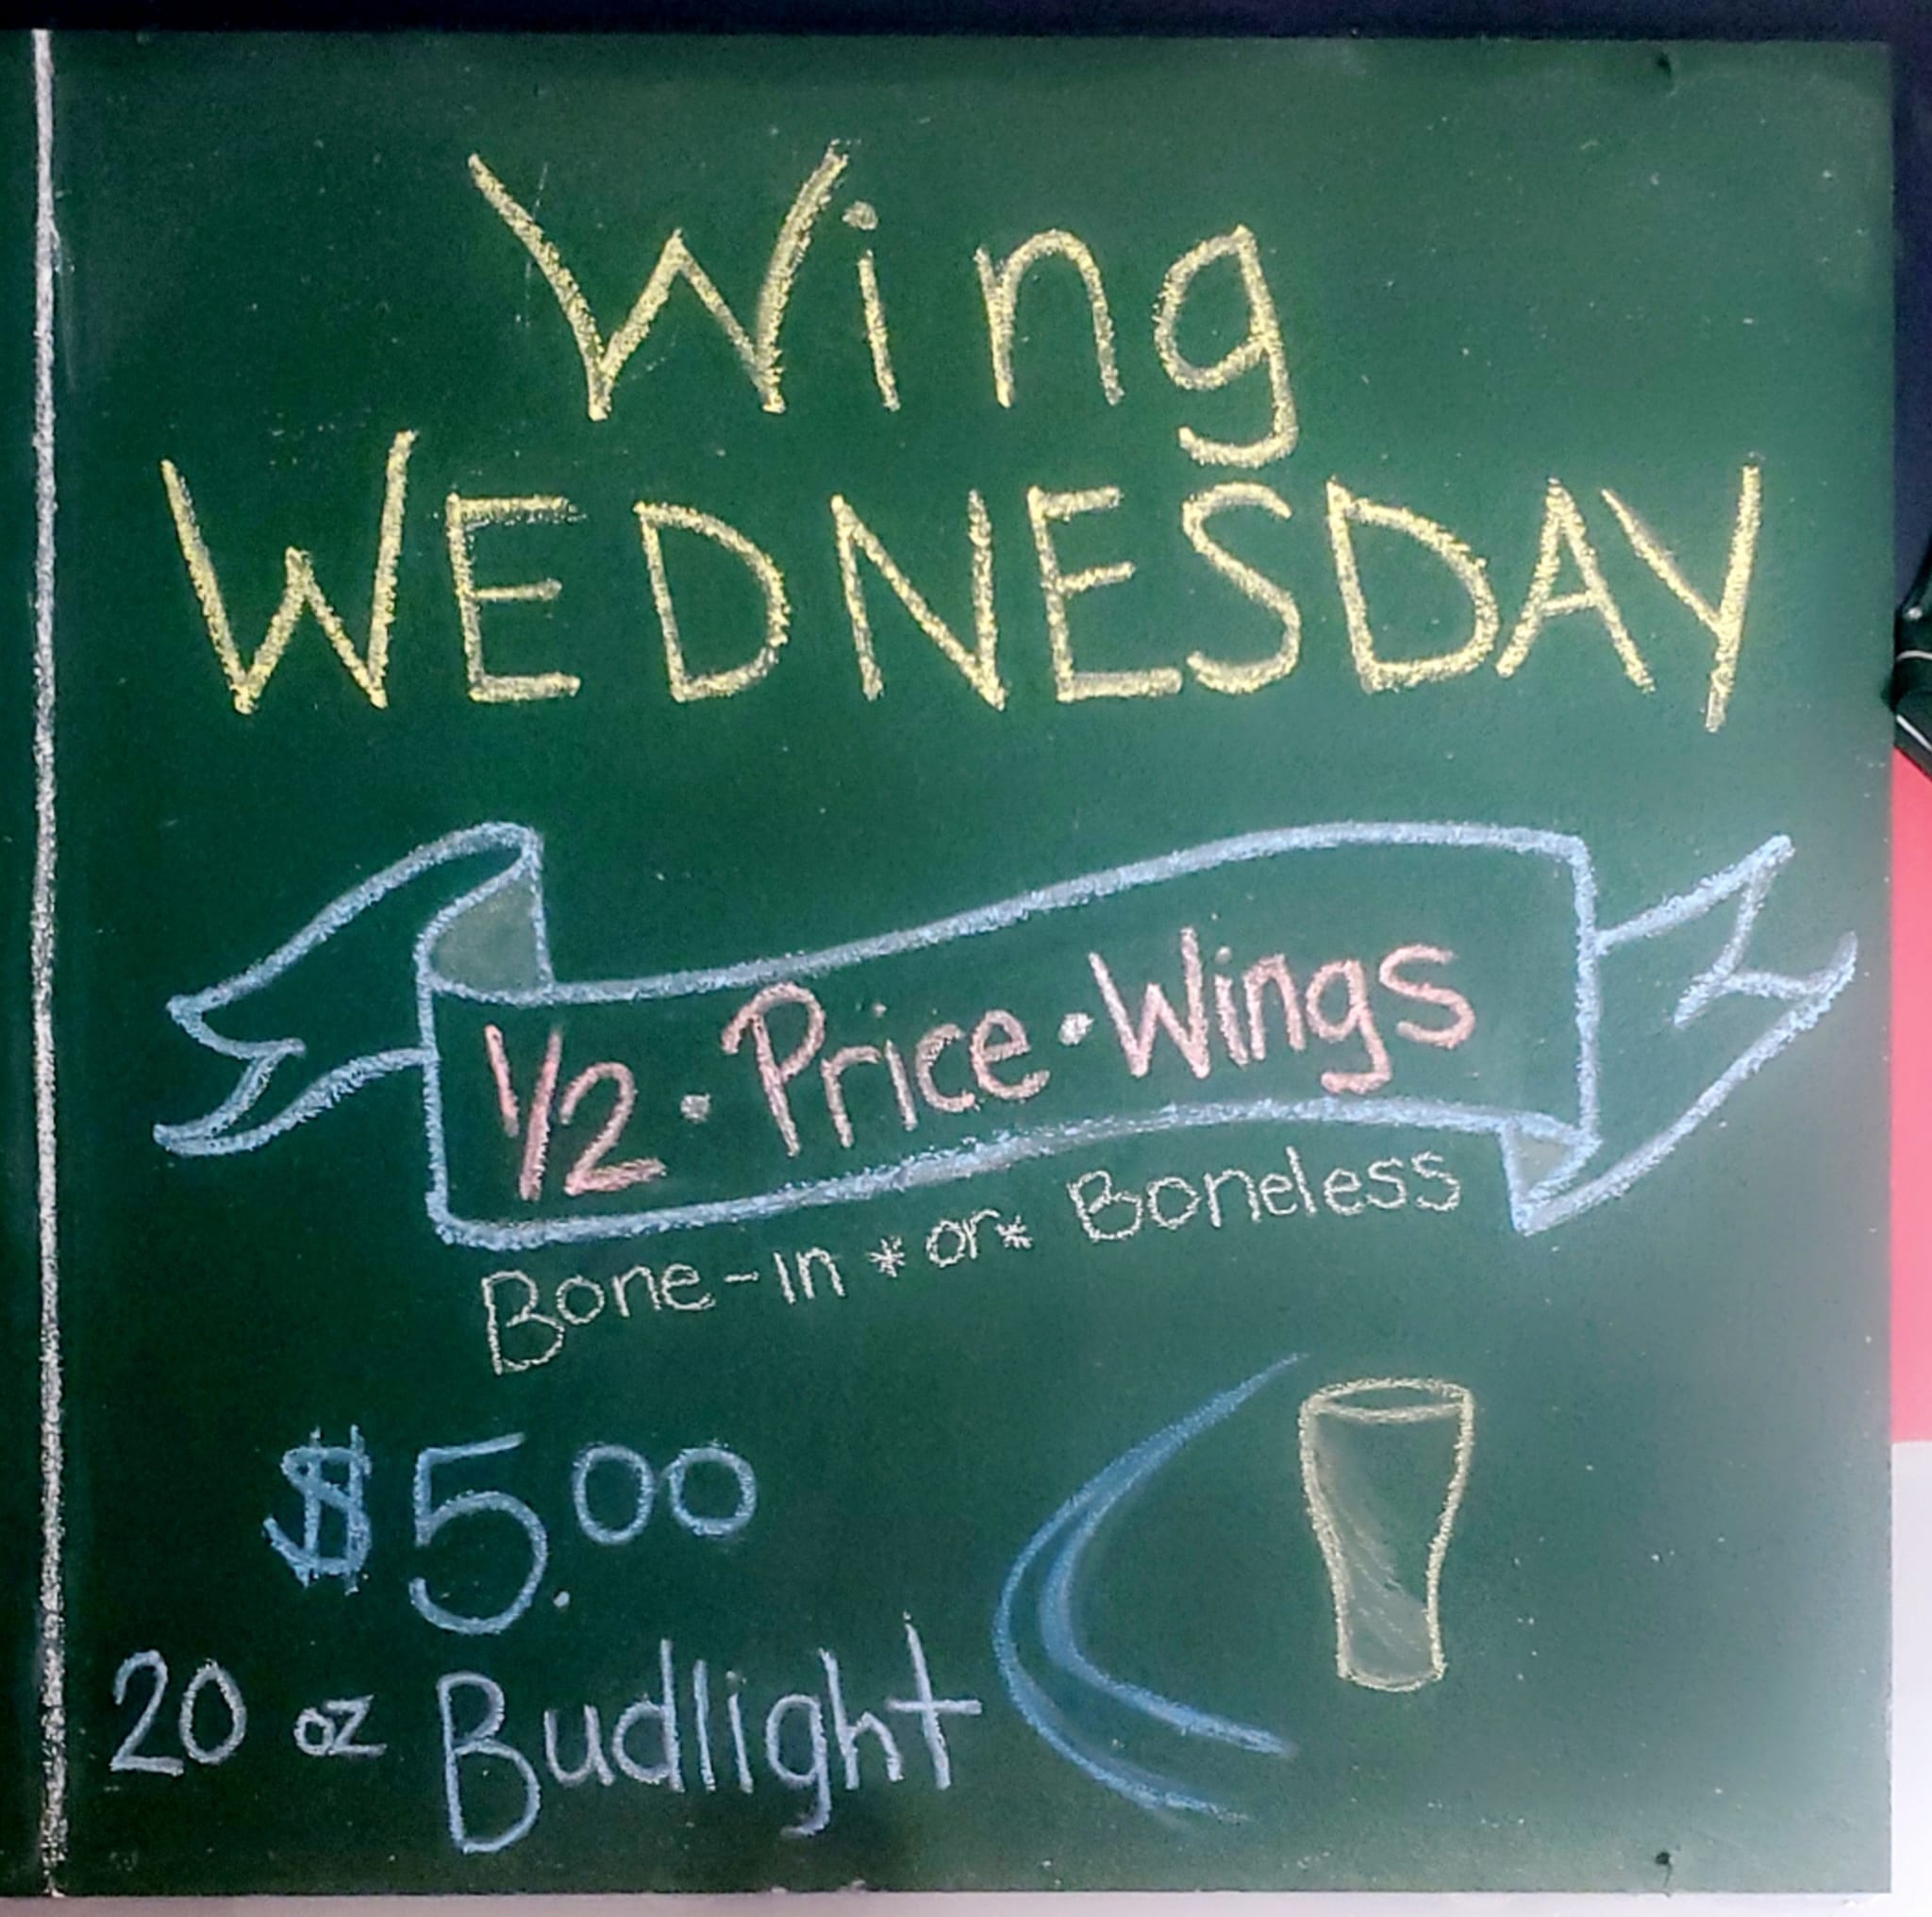 Wing
WEDNESDAY
1/2 • Price • Wings
Bone-in * or * Boneless
$5.00
20 oz Budlight